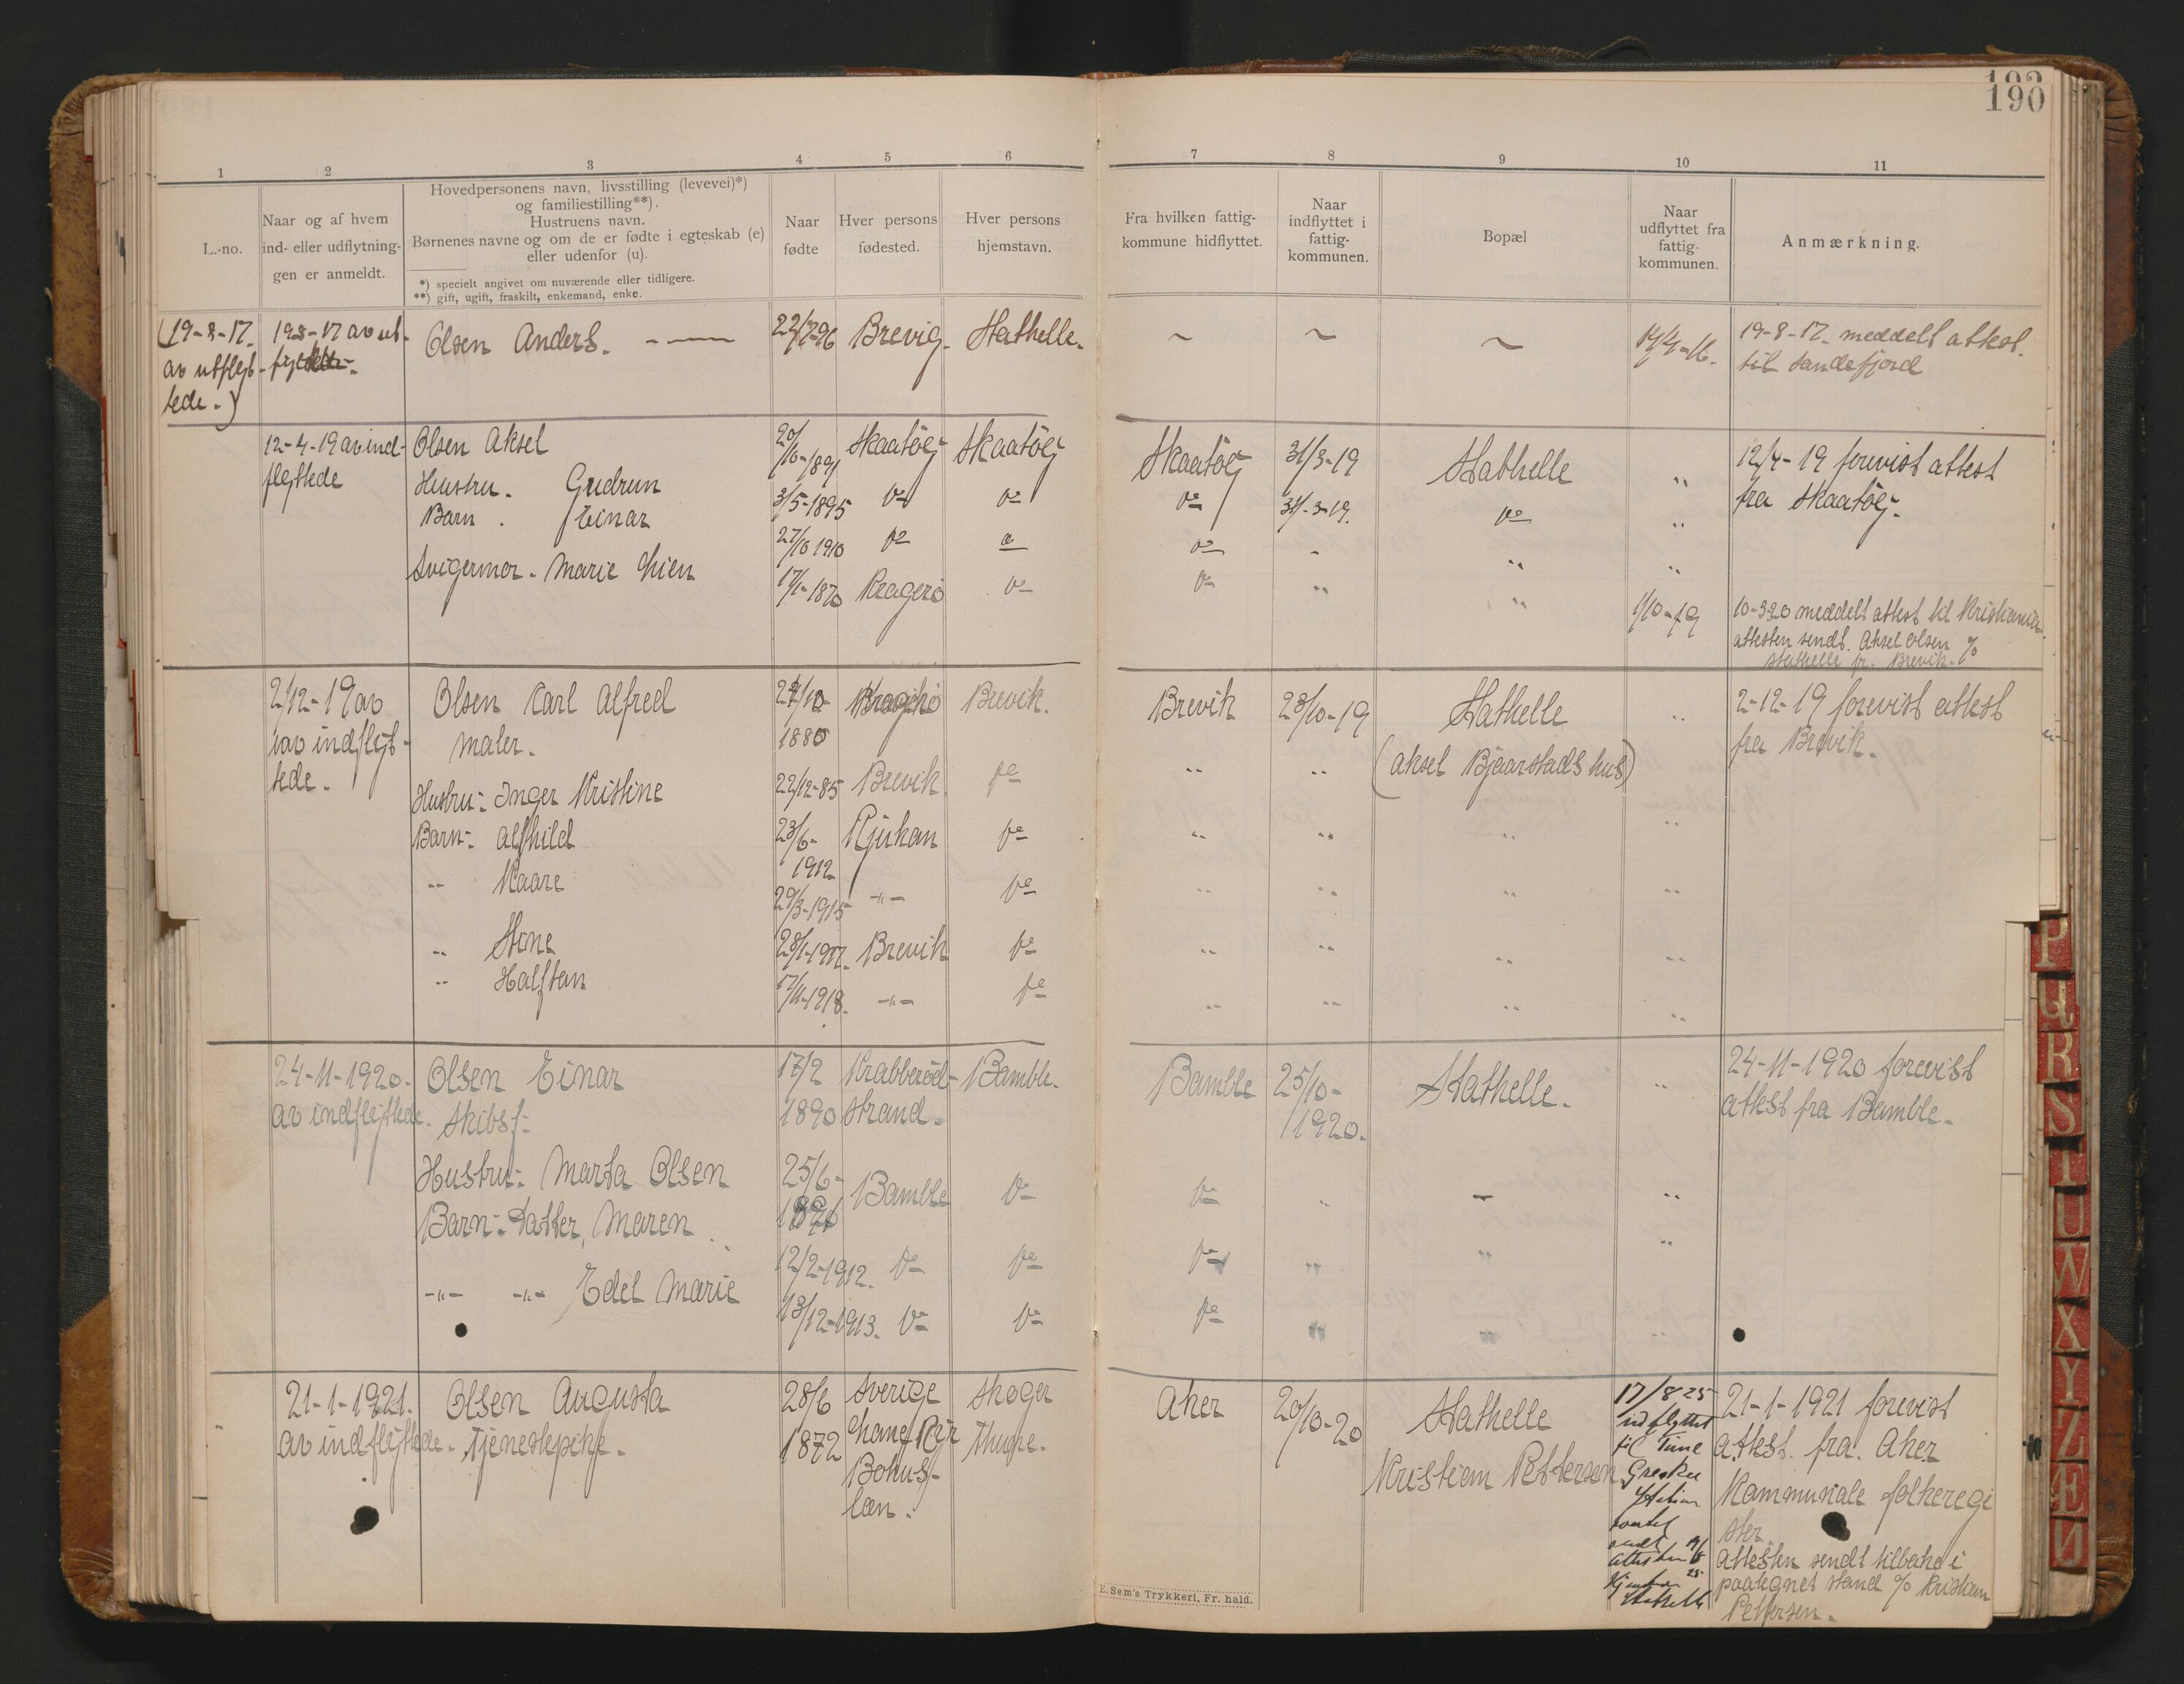 193
190
1 2 3 4 5 6 7 8 9 10 11
L.-no.
Naar og af hvem
ind- eller udflytnin-
gen er anmeldt.
Hovedpersonens navn, livsstilling (levevei)*)
og familiestilling**).
Hustruens navn.
Børnenes navne og om de er fødte i egteskab (e)
eller udenfor (u).
*) specielt angivet om nuværende eller tidligere.
**) gift, ugift, fraskilt, enkemand, enke.
Naar
fødte
Hver persons
fødested.
Hver persons
hjemstavn.
Fra hvilken fattig-
kommune hidflyttet.
Naar
indflyttet i
fattig-
kommunen.
Bopæl
Naar
udflyttet fra
fattig-
kommunen.
Anmærkning.
(19-8-17.
av utflyt-
tede.)
19-8-17 av ut-
flyttede.
Olsen Anders.
22/7-96
Brevig.
Stathelle.
14/4-16.
19-8-17. meddelt attest.
til Sandefjord
12-4-19 av ind-
flyttede
Olsen Aksel
20/10-1891
Skaatöy
Skaatöy
Skaatöy
31/3-19
Stathelle
"
12/4-19 forevist attest
fra Skaatöy.
Hustru. Gudrun
3/5-1895
do
do
do
31/-3-19.
do
"
Barn. Einar
27/10 1910
do
do
do
-
"
"
Svigermor. Marie Lien
17/1-1870
Kragerö
do
do
"
"
1/10-19
10-3-20 meddelt attest til Kristiania.
attesten sendt. Aksel Olsen %
Stathelle pr. Brevik.
2/12-19 av
av indflyt-
tede.
Olsen Carl Alfred
maler.
1880
Brevik.
Brevik
23/10-19
Stathelle
(Aksel Bjaarstads hus)
"
2-12-19 forevist attest
fra Brevik.
Hustru: Inger Kristine
22/12-85
Brevik
do
"
"
Barn: Alfhild
23/6-
1912
Rjukan
do
"
"
"
"
" Kaare
29/3-1915
-"-
do
"
"
"
"
" Stine
28/1-1917.
Brevik
do
"
"
"
"
" Halftan
17/11-1918.
-"-
do
"
"
"
"
24-11-1920.
av indflyttede.
Olsen Einar
Skibsf:
17/2
1890
Krabberöd-
strand.
Bamble.
Bamble
25/10-
1920.
Stathelle.
"
24-11-1920 forevist
attest fra Bamble.
Hustru: Marta Olsen
25/6-
Bamble
do
do
"
-
"
Barn: Datter, Maren
12/2-1912.
do
do
do
"
"
"
-"- -"- Edel Marie
13/12-1913.
do
do
do
"
"
"
21-1-1921.
av indflyttede.
Olsen Augusta
Tjenestepike.
28/6
1872
Sverige
Bohus-
län.
Skoger
Aker
20/10-20
Stathelle
Kristian Pettersen
17/8 25
udflyttet
til
attesten
Stathelle
21-1-1921 forevist
attest. fra. Aker
Kommunale folkeregi
ster
attesten sendt tilbake i
paategnet stand % Kristian
Pettersen.
E. Sem's Trykkeri, Fr. hald.
P Q R S T U W X Y Z Æ